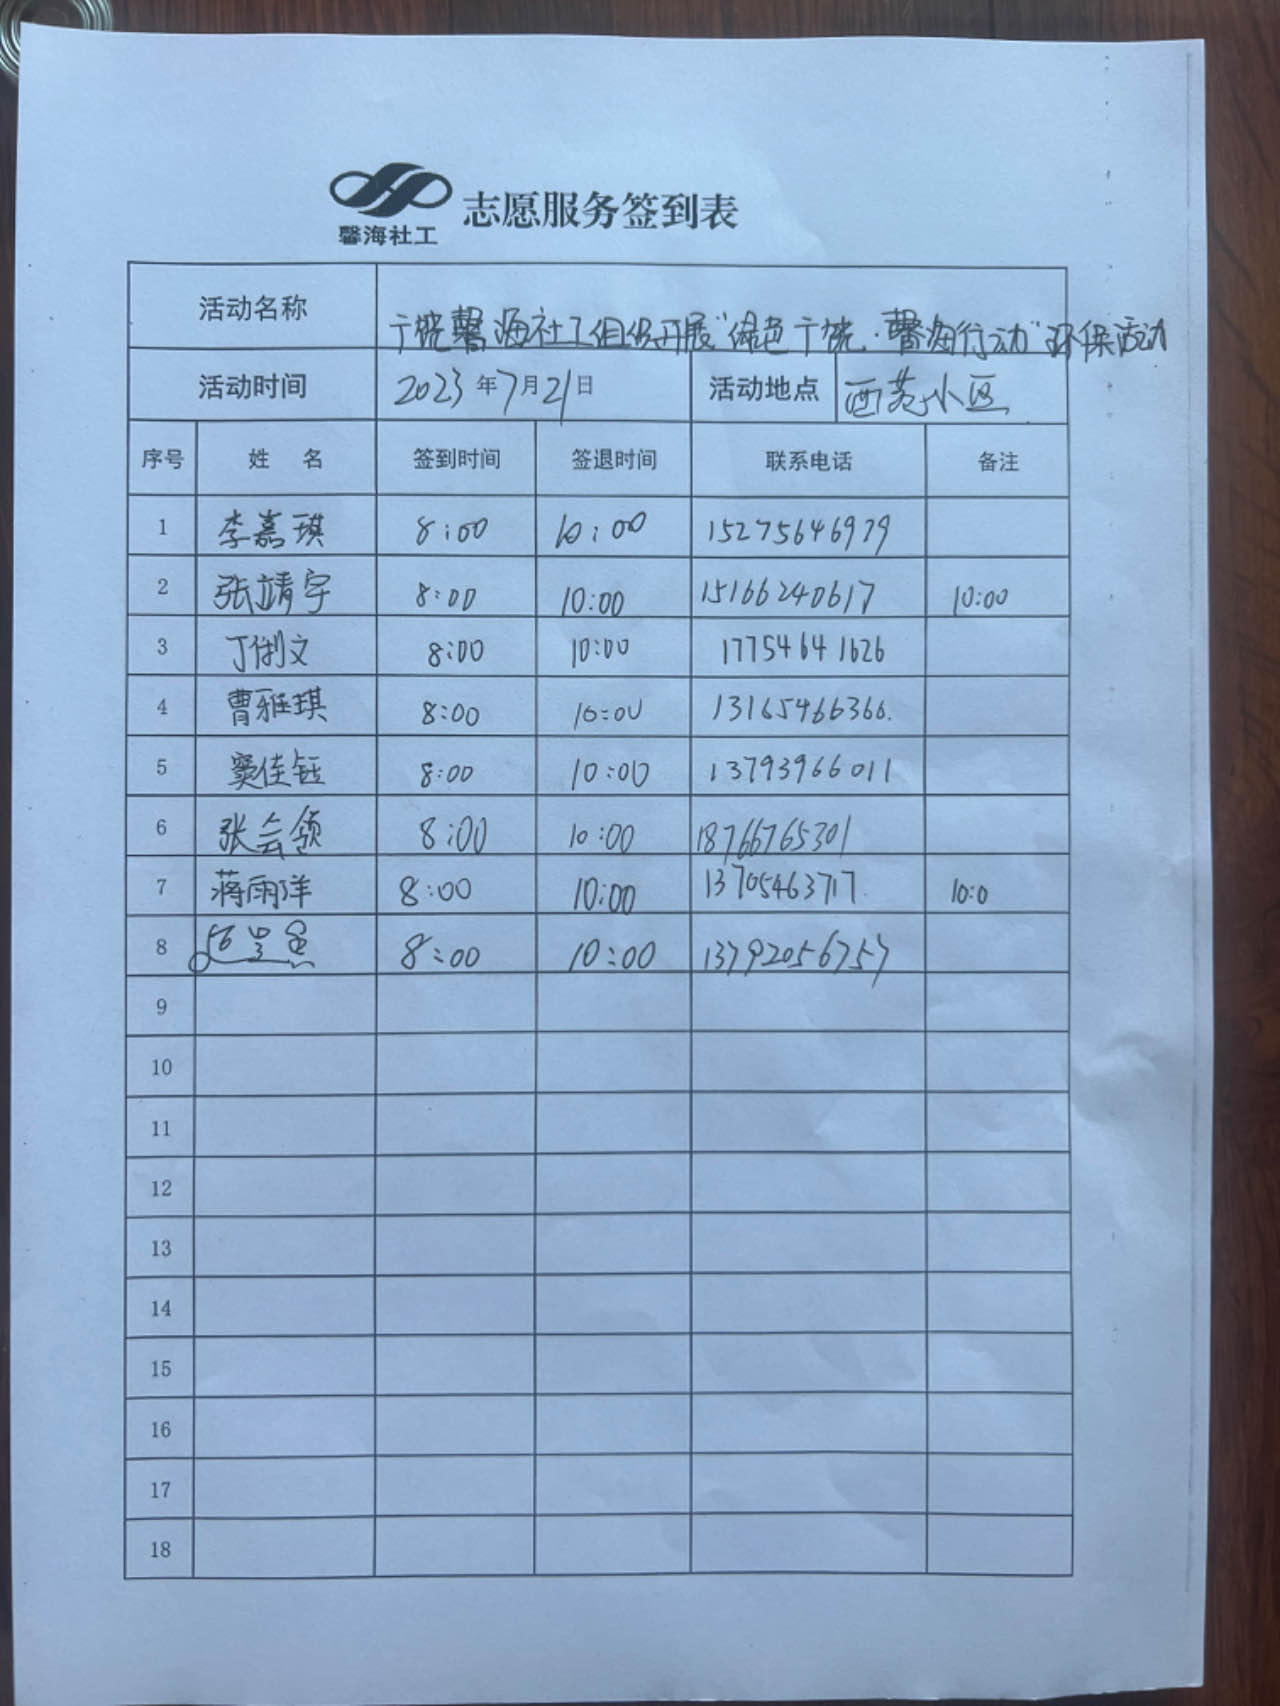 馨海社工
志愿服务签到表
活动名称 广饶馨海社工组织开展“绿色广饶·馨海行动”环保活动
活动时间 2023年7月21日 活动地点 西苑小区
序号 姓 名 签到时间 签退时间 联系电话 备注
1 李嘉琪 8:00 10:00 15275646979
2 张靖宇 8:00 10:00 15166240617 10:00
3 丁俐文 8:00 10:00 17754641626
4 曹雅琪 8:00 10:00 13165466366.
5 窦佳钰 8:00 10:00 13793966011
6 张会领 8:00 10:00 18766765301
7 蒋雨洋 8:00 10:00 13705463717. 10:0
8 8:00 10:00 13792056757
9
10
11
12
13
14
15
16
17
18